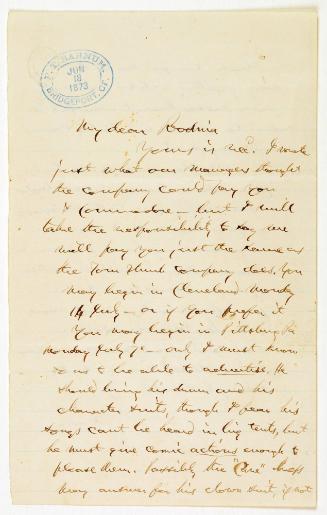 P. T. BARNUM,
JUN
18
1873
BRIDGEPORT, CT.
My dear Rodnia
Yours is rec'd. I wrote
just what our managers thought
the company could pay you
& Commodore — but I will
take the responsibility to say we
will pay you just the same as
the Tom Thumb company does. You
may begin in Cleveland Monday
14 July — or if you prefer it
you may begin in Pittsburgh
Monday July 7 — only I must know
so as to be able to advertise. He
should bring his drum and his
character suits, though I fear his
songs cant be heard in big tents, but
he must give comic actions enough to
please them. Possibly the " " dress
may answer for his clown suit, if not